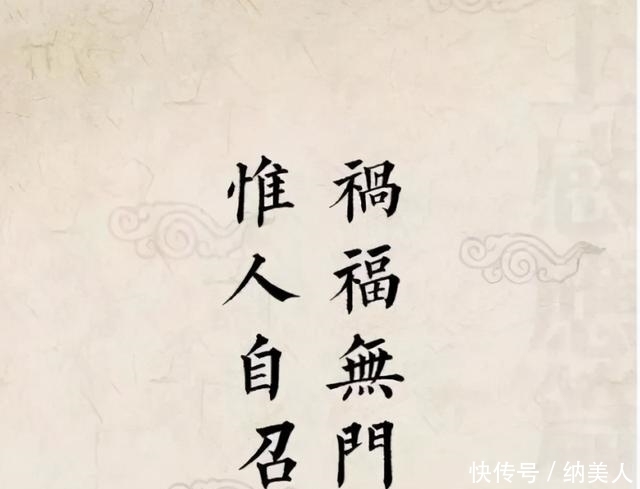 禍福無門
惟人自召
快传号/纳美人